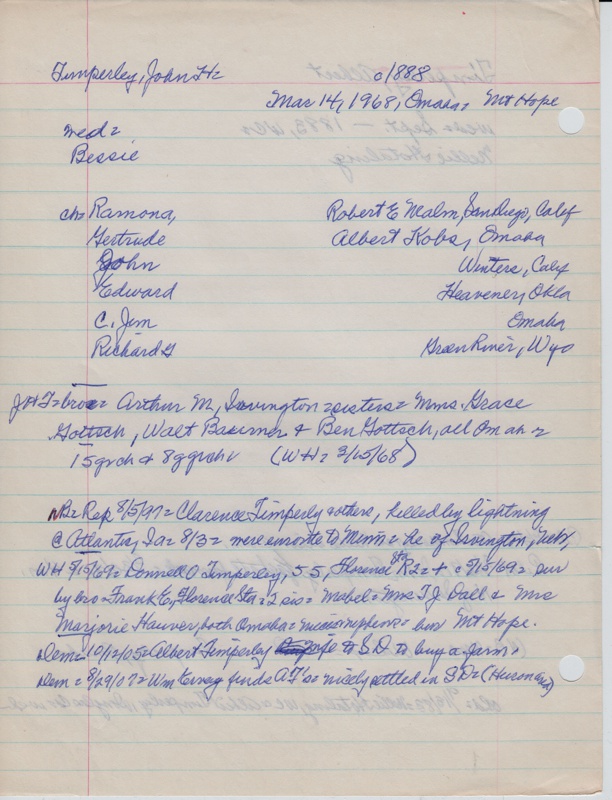 Timperley, John H= c/1888
Mar 14, 1968, Omaha= Mt Hope
wed=
Bessie
ch= Ramona, Robert E Nealm, San Diego, Calif
Gertrude Albert Kobs, Omaha
John Winters, Calif
Edward Heavener, Okla
C. Jim Omaha
Richard G Green River, Wyo
JHT= bro= Arthur M, Irvington = sisters= Mmes. Grace
Gottsch, Walt & Ben Gottsch, all Omaha=
15 grch & 8 ggrch (WH= 3/15/68)
Rep 8/5/97= Clarence Timperly & others, killed by lightning
@ Atlantic, Ia= 8/3= were enroute to Minn= he of Irvington, Neb,
WH 9/15/69= Donnell O Timperley, 55, Florence Sta R2= + 9/15/69= sur
by bro= Frank E, Florence Sta= 2 sis= Mabel= Mrs T J Dall & Mrs
Marjorie Hauver, both Omaha= bur Mt Hope.
Dem= 10/12/05= Albert Timperley to S D to buy a farm=
Dem= 8/29/07= Wm finds A T's= nicely settled in S D= (Huron area)